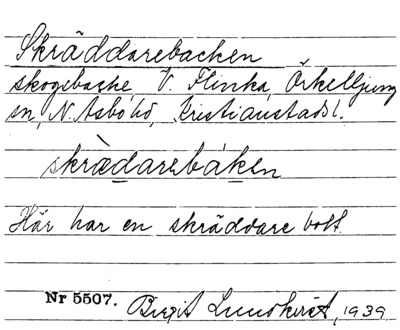 Skräddarebacken
skogsbacke, V. Flinka, Örkelljunga
sn, N. Åsbo hd, Kristianstads l.
skrædarebaken
Här har en skräddare bott.
Nr 5507. Birgit Lundkvist, 1939